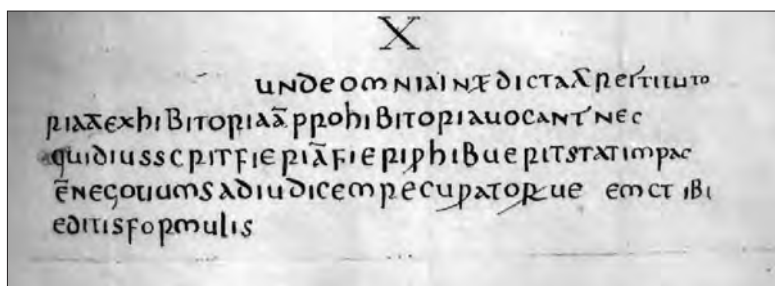 X
undeomniaint̅dictaa̅restituto
riaa̅exhibitoriaa̅prohibitoriauocant'nec
quidiusscritfieria̅fieriphibueritstatimpac
e̅negotiumsadiudicemrecupatorue emct ibi
editisformulis